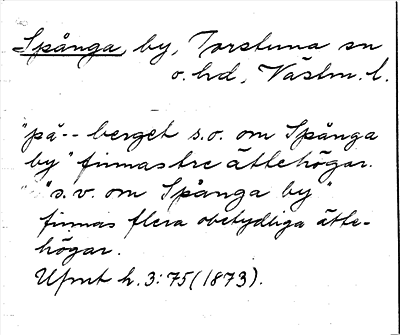 Spånga, by, Torstuna sn
o. hd, Västm. l.
"på -- berget s.o. om Spånga
by" finnas tre ättehögar.
"s.v. om Spånga by"
finnas flera obetydliga ätte-
högar.
Ufmt h. 3:75 (1873).